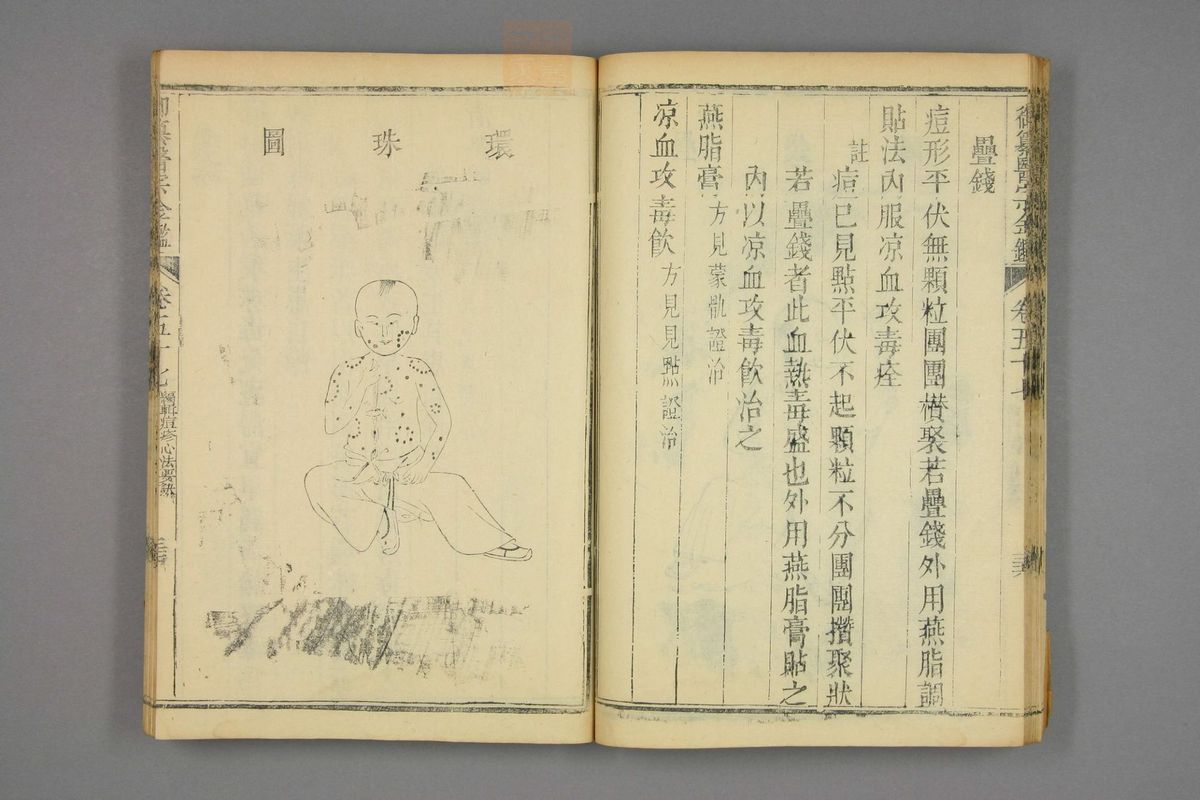 御纂醫宗金鑑 卷五十七
疊錢
痘形平伏無顆粒團團攢聚若疊錢外用燕脂調
貼法內服凉血攻毒痊
註
痘已見點平伏不起顆粒不分團團攢聚狀
若疊錢者此血熱毒盛也外用燕脂膏貼之
內以凉血攻毒飮治之
燕脂膏方見蒙骩證治
凉血攻毒飮方見見點證治
環珠圖
醫宗金鑑 卷五十七 編輯痘疹心法要訣